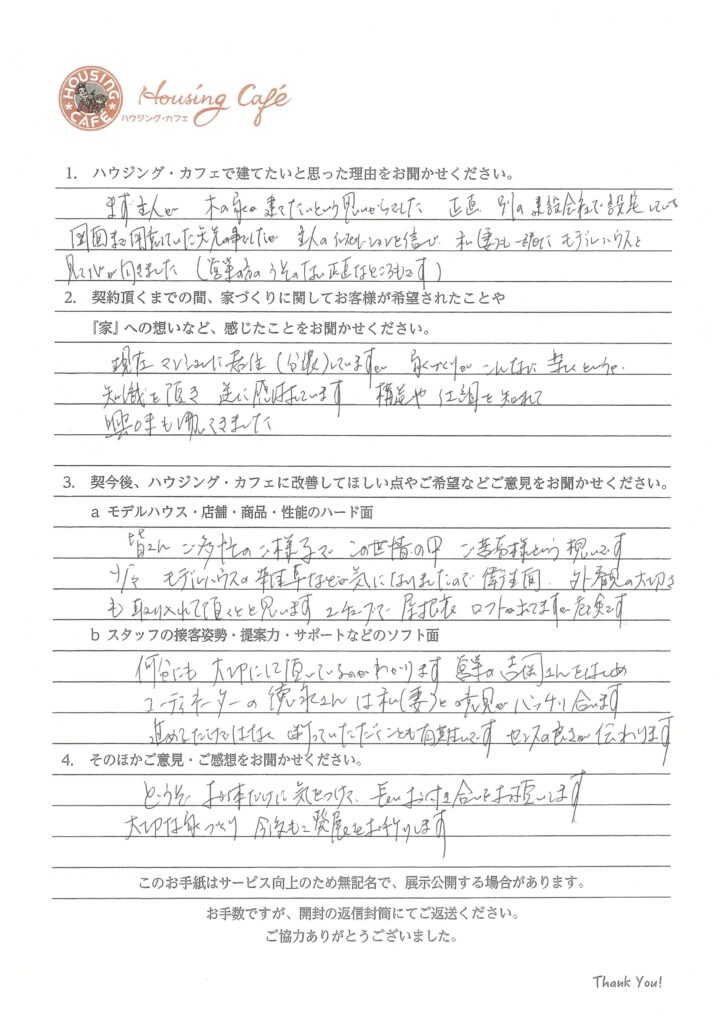 HOUSING CAFÉ
Housing Café
ハウジング・カフェ
1. ハウジング・カフェで建てたいと思った理由をお聞かせください。
まず主人が 木の家を建てたいという思いからでした 正直 別の建設会社で設定している
図面まで書いていた矢先の事でしたが 主人のインスピレーションを信じ 私(妻)も一緒に モデルハウスを
見て心が向きました (営業の方のうそのない正直なところもです)
2. 契約頂くまでの間、家づくりに関してお客様が希望されたことや
『家』への想いなど、感じたことをお聞かせください。
現在 マンションに居住(分譲)していますが 家づくりが こんなに 楽しいというか
知識を頂き 逆に 学ばれています 構造や 仕組を知れて
興味も 出てきました
3. 契今後、ハウジング・カフェに改善してほしい点やご希望などご意見をお聞かせください。
a モデルハウス・店舗・商品・性能のハード面
皆さん ご多忙のご様子で この世情の中 ご苦労様という 想いです
少々 モデルハウスの 雑草などが気になりましたので 衛生面 外観の大切さ
も 取り入れて頂くと と思います ユーチューブで 屋根裏 ロフトが出てますが 危険です
b スタッフの接客姿勢・提案力・サポートなどのソフト面
何分にも 大切にして頂いているのがわかります 営業の吉岡さんをはじめ
コーディネーターの 徳永さんは 私(妻)との意見が バッチリ合います
進めるだけではなく 断っていただくことも有難いです センスの良さが伝わります
4. そのほかご意見・ご感想をお聞かせください。
どうぞ お体だけに気をつけて、長いお付き合いをお願いします
大切な家づくり 今後もご発展をお祈りします
このお手紙はサービス向上のため無記名で、展示公開する場合があります。
お手数ですが、開封の返信封筒にてご返送ください。
ご協力ありがとうございました。
Thank You!